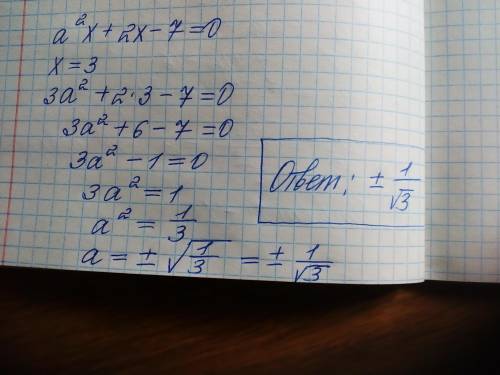 a²x + 2x - 7 = 0
x = 3
3a² + 2·3 - 7 = 0
3a² + 6 - 7 = 0
3a² - 1 = 0
3a² = 1
a² = 1/3
a = ± √(1/3) = ± 1/√3
Ответ: ± 1/√3